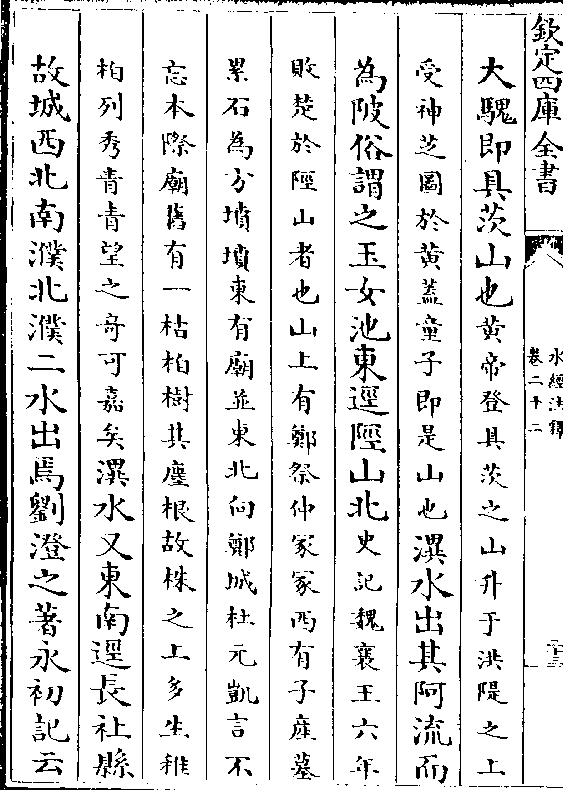 欽定四庫全書
水經注釋
卷二十二
大騩即具茨山也黄帝登具茨之山升于洪隄之上
受神芝圖於黄蓋童子即是山也潩水出其阿流而
為陂俗謂之玉女池東逕陘山北史記魏襄王六年
敗楚於陘山者也山上有鄭祭仲冢冢西有子產墓
累石為方墳墳東有廟並東北向鄭城杜元凱言不
忘本際廟舊有一枯柏樹其塵根故株之上多生稚
柏列秀青青望之奇可嘉矣潩水又東南逕長社縣
故城西北南濮北濮二水出焉劉澄之著永初記云